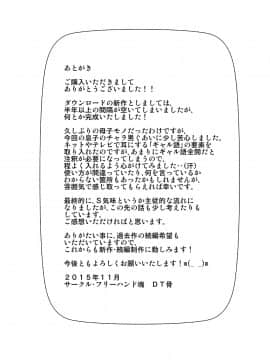 あとがき
ご購入いただきまして
ありがとうございました！！
ダウンロードの新作としましては、
半年以上の間隔が空いてしまいましたが、
何とか完成いたしました！
久しぶりの母子モノだったわけですが、
今回の息子のチャラ男ぐあいに少し苦心しました。
ネットやテレビで耳にする「ギャル語」の要素を
取り入れたのですが、あまりにギャル語全開だと
注釈が必要になってしまうので、
程よく入れるよう心がけてみました…（汗）
使い方が間違っていたり、何を言っているか
わからない箇所もあったかもしれませんが、
雰囲気で感じ取ってもらえれば幸いです。
最終的に、Ｓ気味というか主従的な流れに
なりましたが、この先の話も少し考えたりも
しています。
ご感想いただければと思います。
ありがたい事に、過去作の続編希望も
いただいていますので、
これからも新作・続編制作に励みます！
今後ともよろしくお願いいたします！m(_ _)m
２０１５年１１月
サークル・フリーハンド魂　ＤＴ骨